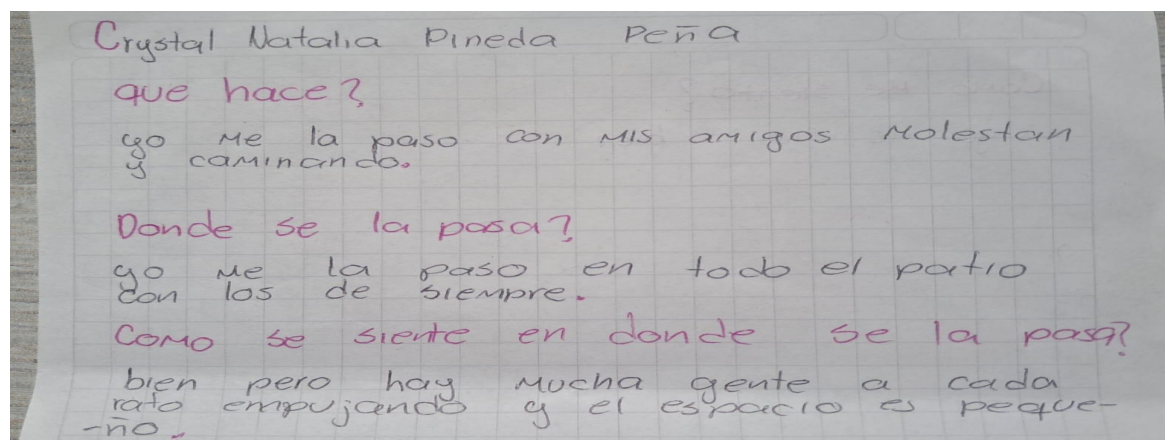 Crystal Natalia Pineda Peña
que hace?
yo me la paso con mis amigos molestan
y caminando.
Donde se la pasa?
yo me la paso en todo el patio
con los de siempre.
Como se siente en donde se la pasa?
bien pero hay mucha gente a cada
rato empujando y el espacio es peque-
-ño.